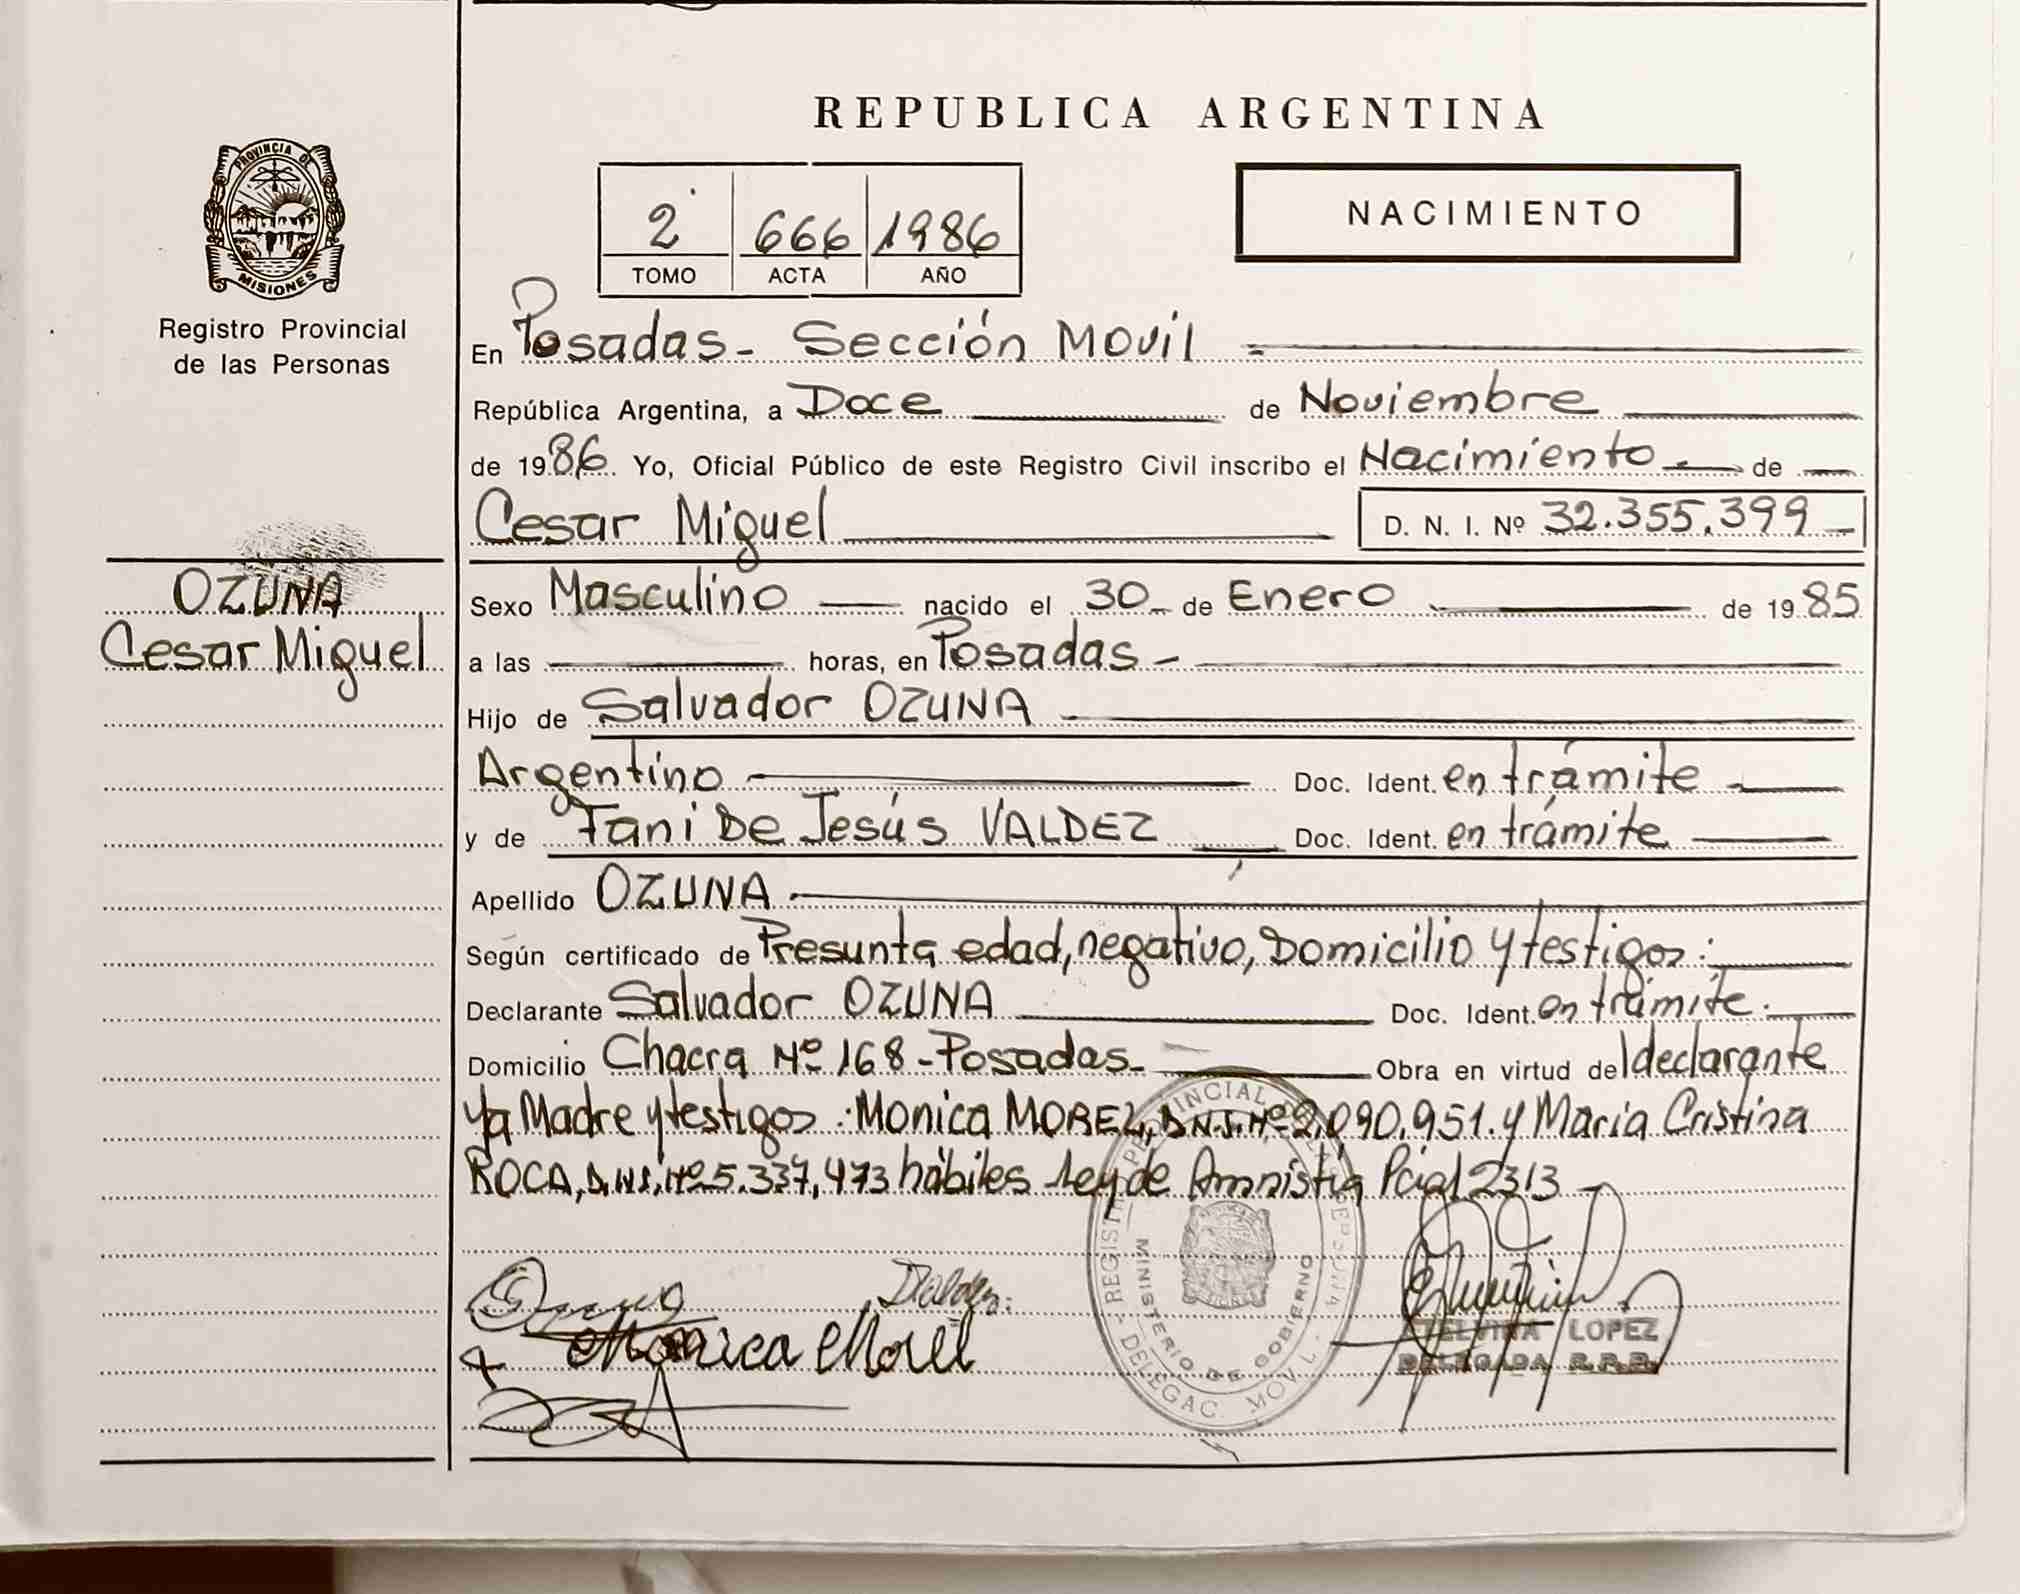 REPUBLICA ARGENTINA
PROVINCIA DE
MISIONES
Registro Provincial
de las Personas
2 666 1986
TOMO ACTA AÑO
NACIMIENTO
En Posadas - Sección Movil
República Argentina, a Doce de Noviembre
de 1986. Yo, Oficial Público de este Registro Civil inscribo el Nacimiento de
Cesar Miguel D. N. I. Nº 32.355.399
OZUNA
Cesar Miguel
Sexo Masculino nacido el 30 de Enero de 1985
a las horas, en Posadas -
Hijo de Salvador OZUNA
Argentino Doc. Ident. en trámite
y de Tani De Jesús VALDEZ Doc. Ident. en trámite
Apellido OZUNA
Según certificado de Presunta edad, negativo, Domicilio y testigos:
Declarante Salvador OZUNA Doc. Ident. en trámite.
Domicilio Chacra Nº 168 - Posadas - Obra en virtud del declarante
y a Madre y testigos: Monica MOREL, D.N.I. Nº 2,090,951. y Maria Cristina
ROCA, D.N.I. Nº 5.337,473 hábiles Ley de Amnistia Pcial 2313
Valdez
Monica Morel
REGISTRO PROVINCIAL DE LAS PERSONAS
MINISTERIO DE GOBIERNO
DELEGAC. MOVIL
ETELVINA LOPEZ
DELEGADA R.P.P.